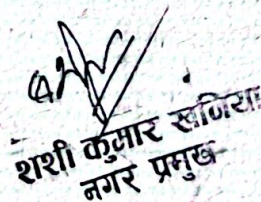 शशी कुमार खजिया
नगर प्रमुख